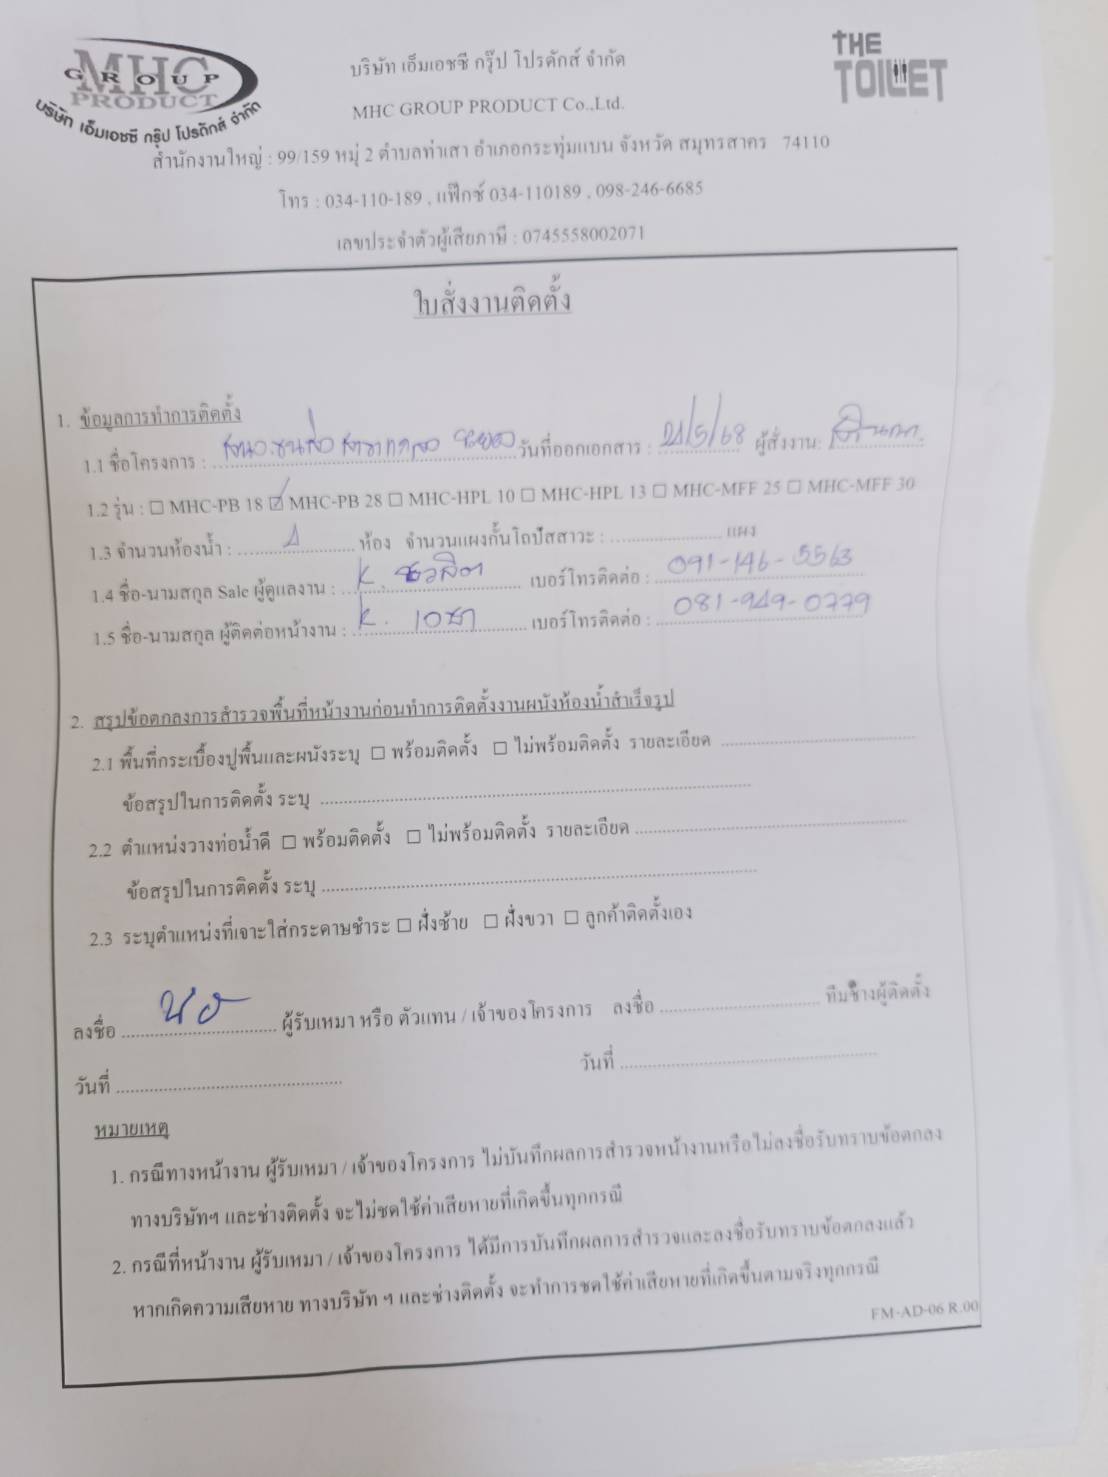 MHC
GROUP
PRODUCT
บริษัท เอ็มเอชซี กรุ๊ป โปรดักส์ จำกัด
THE
TOILET
บริษัท เอ็มเอชซี กรุ๊ป โปรดักส์ จำกัด
MHC GROUP PRODUCT Co.,Ltd.
สำนักงานใหญ่ : 99/159 หมู่ 2 ตำบลท่าเสา อำเภอกระทุ่มแบน จังหวัด สมุทรสาคร 74110
โทร : 034-110-189 , แฟ๊กซ์ 034-110189 , 098-246-6685
เลขประจำตัวผู้เสียภาษี : 0745558002071
ใบสั่งงานติดตั้ง
1. ข้อมูลการทำการติดตั้ง
1.1 ชื่อโครงการ : ระยอง วันที่ออกเอกสาร : 21/5/68 ผู้สั่งงาน:
1.2 รุ่น : ☐ MHC-PB 18 ☑ MHC-PB 28 ☐ MHC-HPL 10 ☐ MHC-HPL 13 ☐ MHC-MFF 25 ☐ MHC-MFF 30
1.3 จำนวนห้องน้ำ : ห้อง จำนวนแผงกั้นโถปัสสาวะ : แผง
1.4 ชื่อ-นามสกุล Sale ผู้ดูแลงาน : K. ชวลิต เบอร์โทรติดต่อ : 091-146-5563
1.5 ชื่อ-นามสกุล ผู้ติดต่อหน้างาน : K. เอชา เบอร์โทรติดต่อ : 081-949-0779
2. สรุปข้อตกลงการสำรวจพื้นที่หน้างานก่อนทำการติดตั้งงานผนังห้องน้ำสำเร็จรูป
2.1 พื้นที่กระเบื้องปูพื้นและผนังระบุ ☐ พร้อมติดตั้ง ☐ ไม่พร้อมติดตั้ง รายละเอียด
ข้อสรุปในการติดตั้ง ระบุ
2.2 ตำแหน่งวางท่อน้ำดี ☐ พร้อมติดตั้ง ☐ ไม่พร้อมติดตั้ง รายละเอียด
ข้อสรุปในการติดตั้ง ระบุ
2.3 ระบุตำแหน่งที่เจาะใส่กระดาษชำระ ☐ ฝั่งซ้าย ☐ ฝั่งขวา ☐ ลูกค้าติดตั้งเอง
ลงชื่อ ผู้รับเหมา หรือ ตัวแทน / เจ้าของโครงการ ลงชื่อ ทีมช่างผู้ติดตั้ง
วันที่ วันที่
หมายเหตุ
1. กรณีทางหน้างาน ผู้รับเหมา / เจ้าของโครงการ ไม่บันทึกผลการสำรวจหน้างานหรือไม่ลงชื่อรับทราบข้อตกลง
ทางบริษัทฯ และช่างติดตั้ง จะไม่ชดใช้ค่าเสียหายที่เกิดขึ้นทุกกรณี
2. กรณีที่หน้างาน ผู้รับเหมา / เจ้าของโครงการ ได้มีการบันทึกผลการสำรวจและลงชื่อรับทราบข้อตกลงแล้ว
หากเกิดความเสียหาย ทางบริษัท ฯ และช่างติดตั้ง จะทำการชดใช้ค่าเสียหายที่เกิดขึ้นตามจริงทุกกรณี
FM-AD-06 R.00